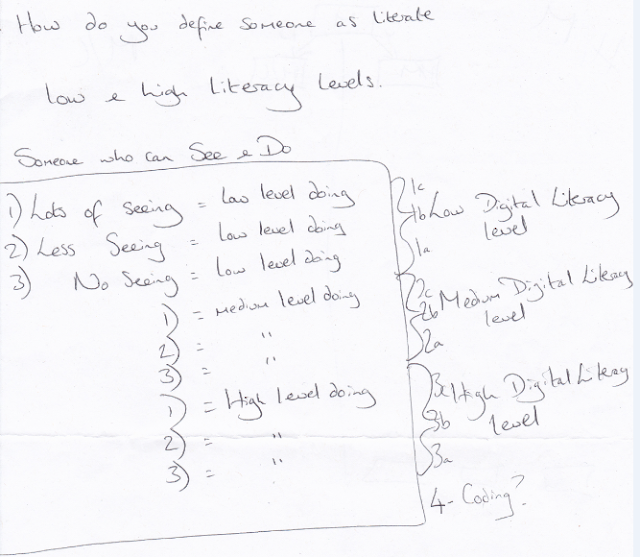 . How do you define someone as literate
Low & high Literacy Levels.
Someone who can See & Do
1) Lots of seeing = Low level doing
2) Less Seeing = Low level doing
3) No Seeing = Low level doing
1) = Medium level doing
2) = "
3) = "
1) = High level doing
2) = "
3) = "
1c
1b Low Digital Literacy level
1a
2c
2b Medium Digital Literacy level
2a
3c High Digital Literacy level
3b
3a
4 - Coding?